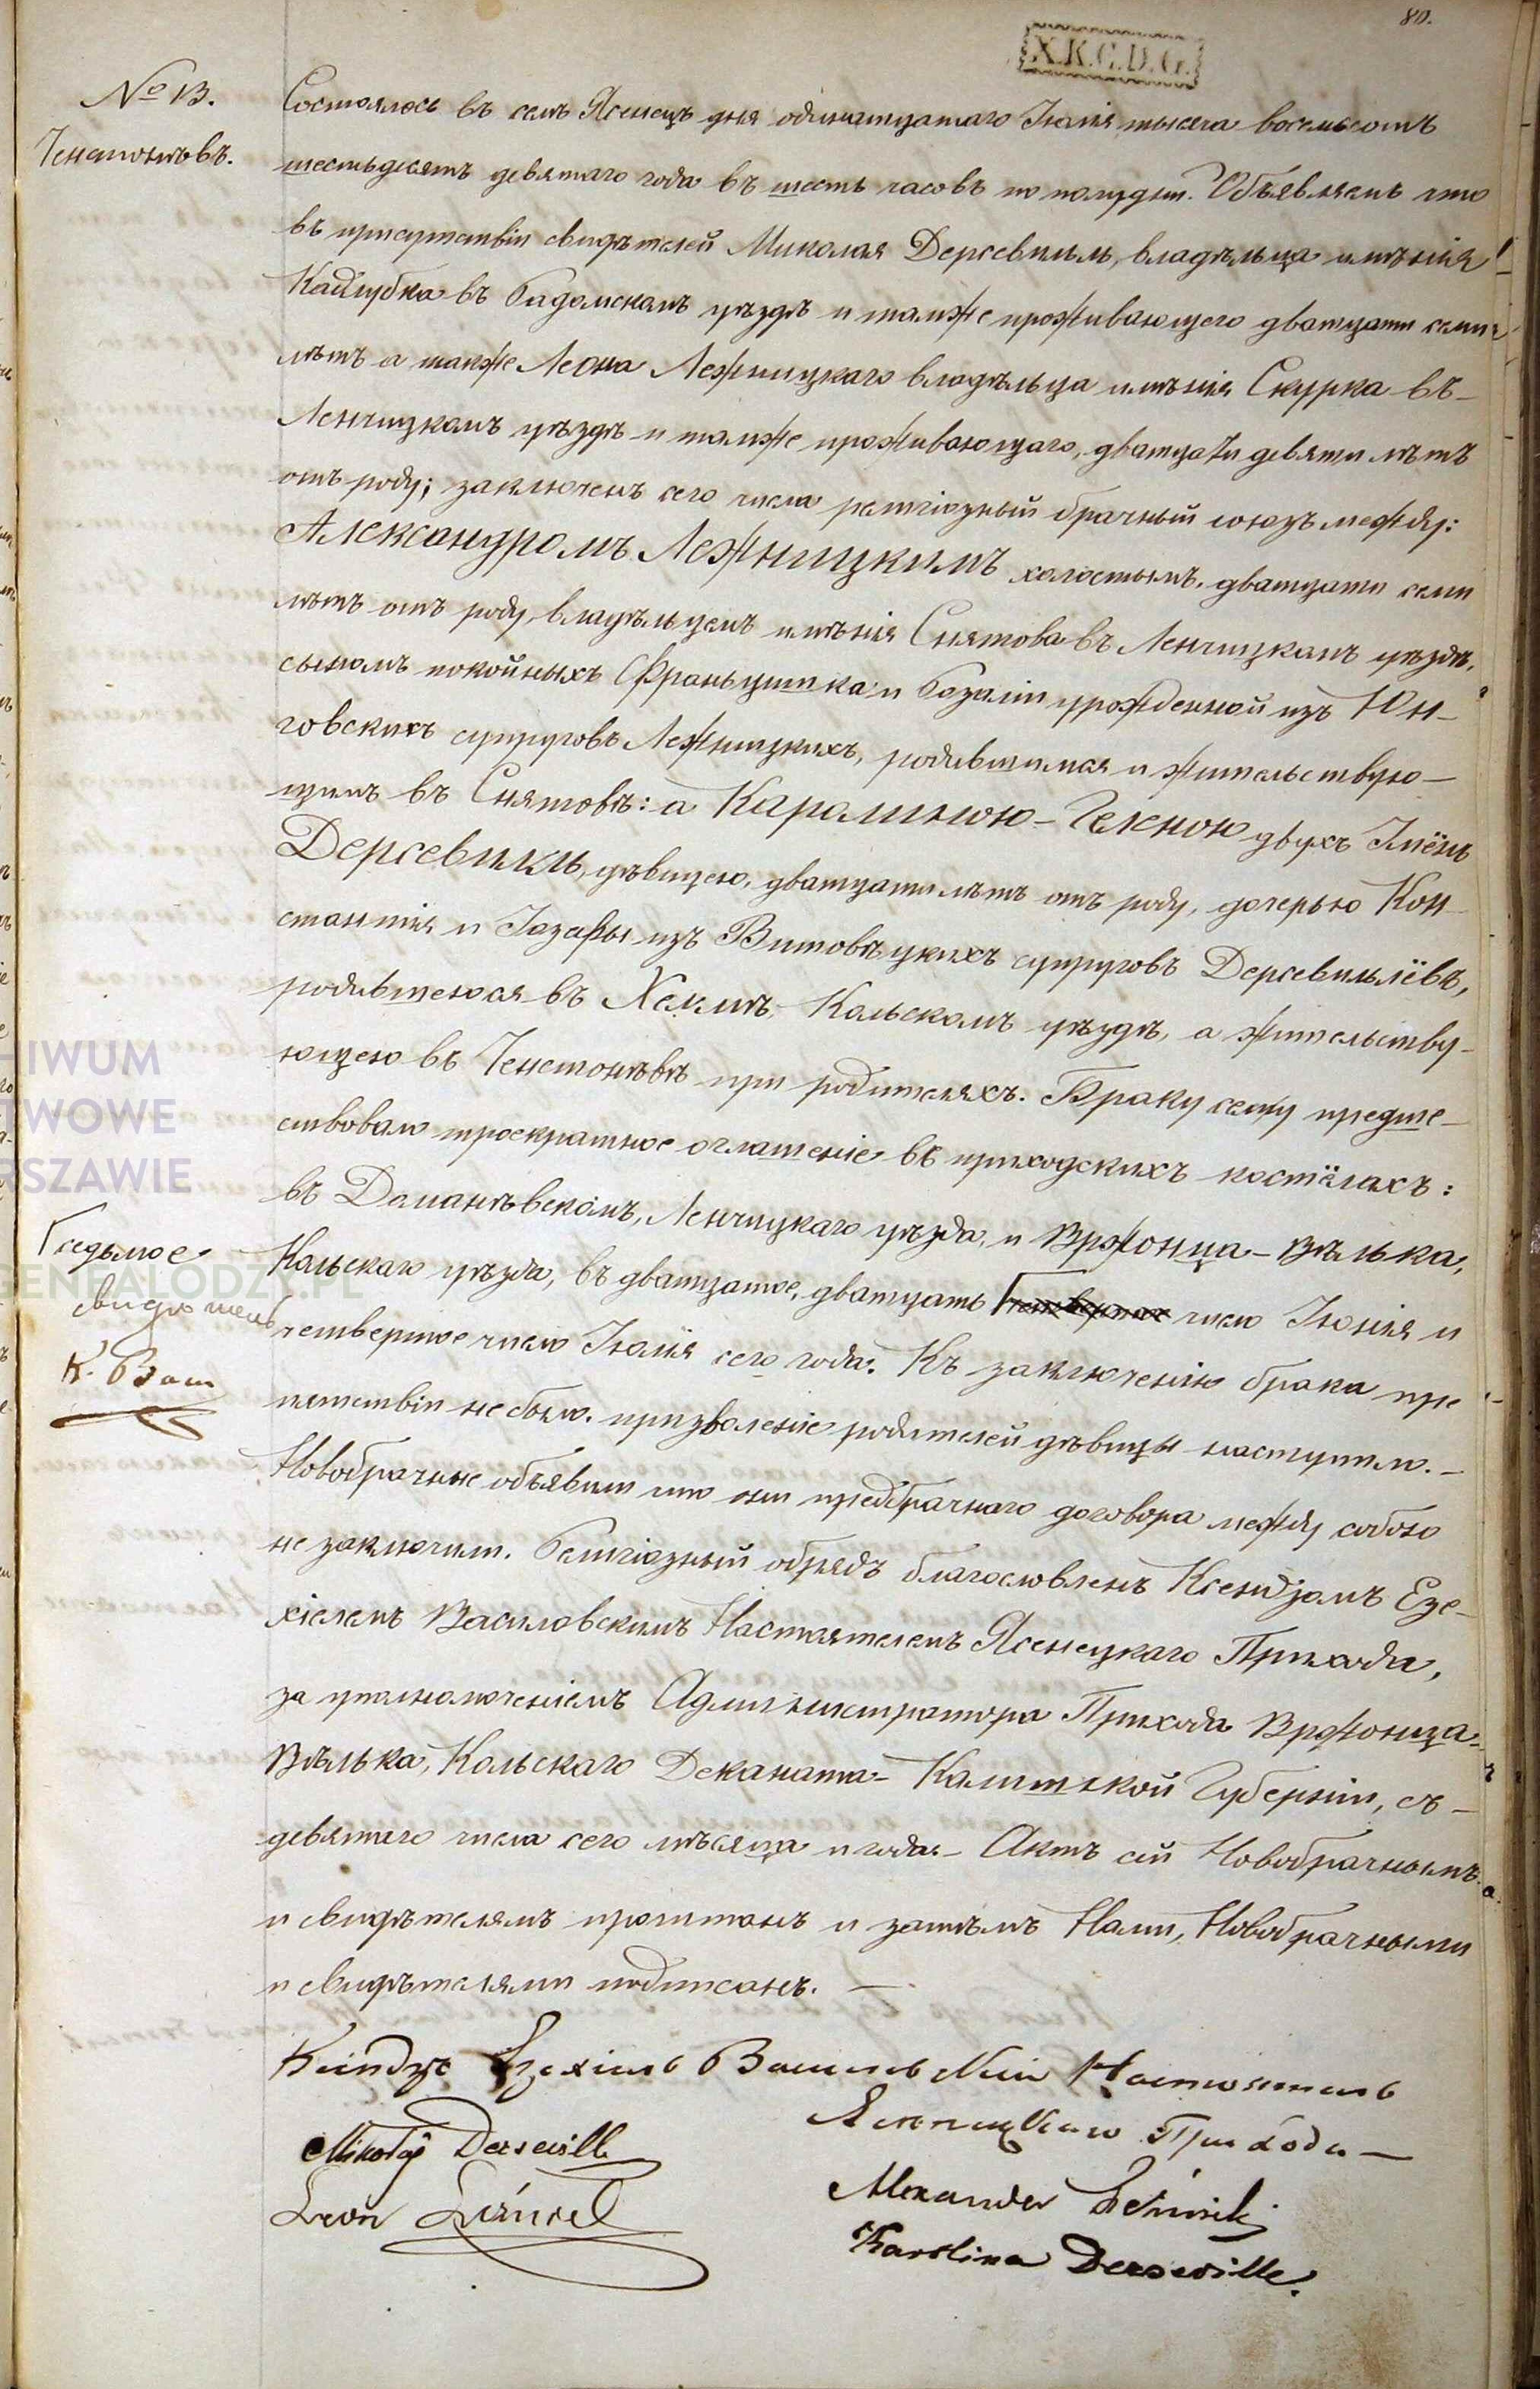 80.
X.K.G.D.G.
№ 13.
Ченстонѣвъ.
Состоялось въ селѣ Ясенецъ дня одинатцатаго Іюлія тысяча восемьсотъ
шестьдесятъ девятаго года въ шесть часовъ по полудни. Объявляемъ что
въ присутствіи свидѣтелей Миколая Дерсевилль, владѣльца имѣнія
Кадлубка въ Радомскомъ уѣздѣ и тамже проживающего дватцати семи
лѣтъ а также Леона Лежницкаго владѣльца имѣнія Скурка въ
Ленчицкомъ уѣздѣ и тамже проживающаго, дватцати девяти лѣтъ
отъ роду; заключенъ сего числа религіозный брачный союзъ между:
Александромъ Лежницкимъ холостымъ, дватцати семи
лѣтъ отъ роду, владѣльцемъ имѣнія Снятова въ Ленчицкомъ уѣздѣ,
сыномъ покойныхъ Франьцишка и Розаліи урожденной изъ Юн-
говскихъ супруговъ Лежницкихъ, родившимся и жительствую-
щимъ въ Снятовѣ: а Каролиною-Геленою двухъ Имёнъ
Дерсевилль, дѣвицею, дватцати лѣтъ отъ роду, дочерью Кон-
стантія и Іозефы изъ Витовѣцкихъ супруговъ Дерсевильлёвъ,
родившеюся въ Хелмѣ, Кольскомъ уѣздѣ, а жительству-
ющею въ Ченстонѣвѣ при родителяхъ. Браку сему предше-
ствовало троекратное оглашеніе въ приходскихъ костёлахъ:
въ Доманѣвскомъ, Ленчицкаго уѣзда, и Вржонца-Вѣлька,
Кольскаго уѣзда, въ дватцатое, дватцать число Іюнія и
седьмое
свидѣтель
К. Ваш
четвертое число Іюлія сего года. Къ заключенію брака пре
пятствіи не было. призволеніе родителей дѣвицы наступило. –
Новобрачные объявили что они предбрачнаго договора между собою
не заключили. Религіозный обрядъ благословленъ Ксендзомъ Езе-
хіелемъ Василовскимъ Настоятелемъ Ясенецкаго Прихода,
за уполномоченіемъ Администратора Прихода Вржонца-
Вѣлька, Кольскаго Деканата – Калишской Губерніи, съ
девятаго числа сего мѣсяца и года. – Актъ сій Новобрачнымъ
и свидѣтелямъ прочитанъ и затѣмъ Нами, Новобрачными
и свидѣтелями подписанъ. —
Ксіндзъ Езехіелъ Настоятель
Ясенецкаго Прихода —
Mikołaj Derseville
Leon
Alexander Leźnicki
Karolina Derseville.
HIWUM
TWOWE
RSZAWIE
GENEALODZY.PL